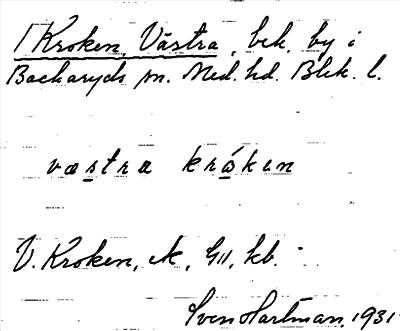 Kroken, Västra, bek. by i
Backaryds sn. Med. hd. Blek. l.
væstra krȧken
V. Kroken, ek, G11, kb.
Sven Hartman 1931